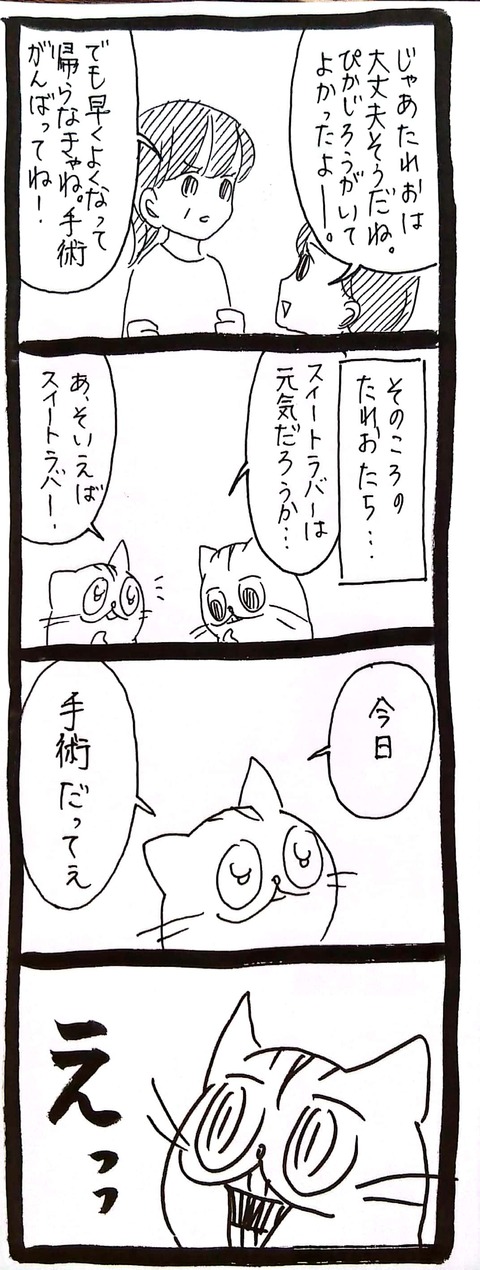 じゃあたれおは
大丈夫そうだね。
ぴかじろうがいて
よかったよー。
でも早くよくなって
帰らなきゃね。手術
がんばってね！
そのころの
たれおたち…
スイートラバーは
元気だろうか…
あ、そいえば
スイートラバー、
今日
手術だってえ
えっっ